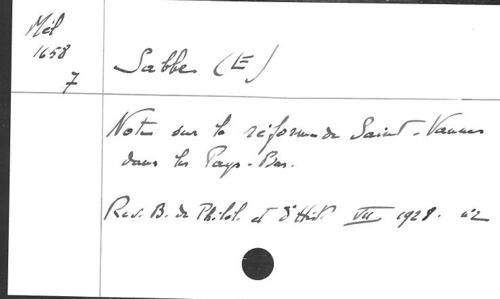 Mél
1658
7
Sabbe (E)
Note sur la réforme de Saint-Vannes
dans les Pays-Bas.
Rev. B. de Philol. et d'Hist. VII 1928. n°2